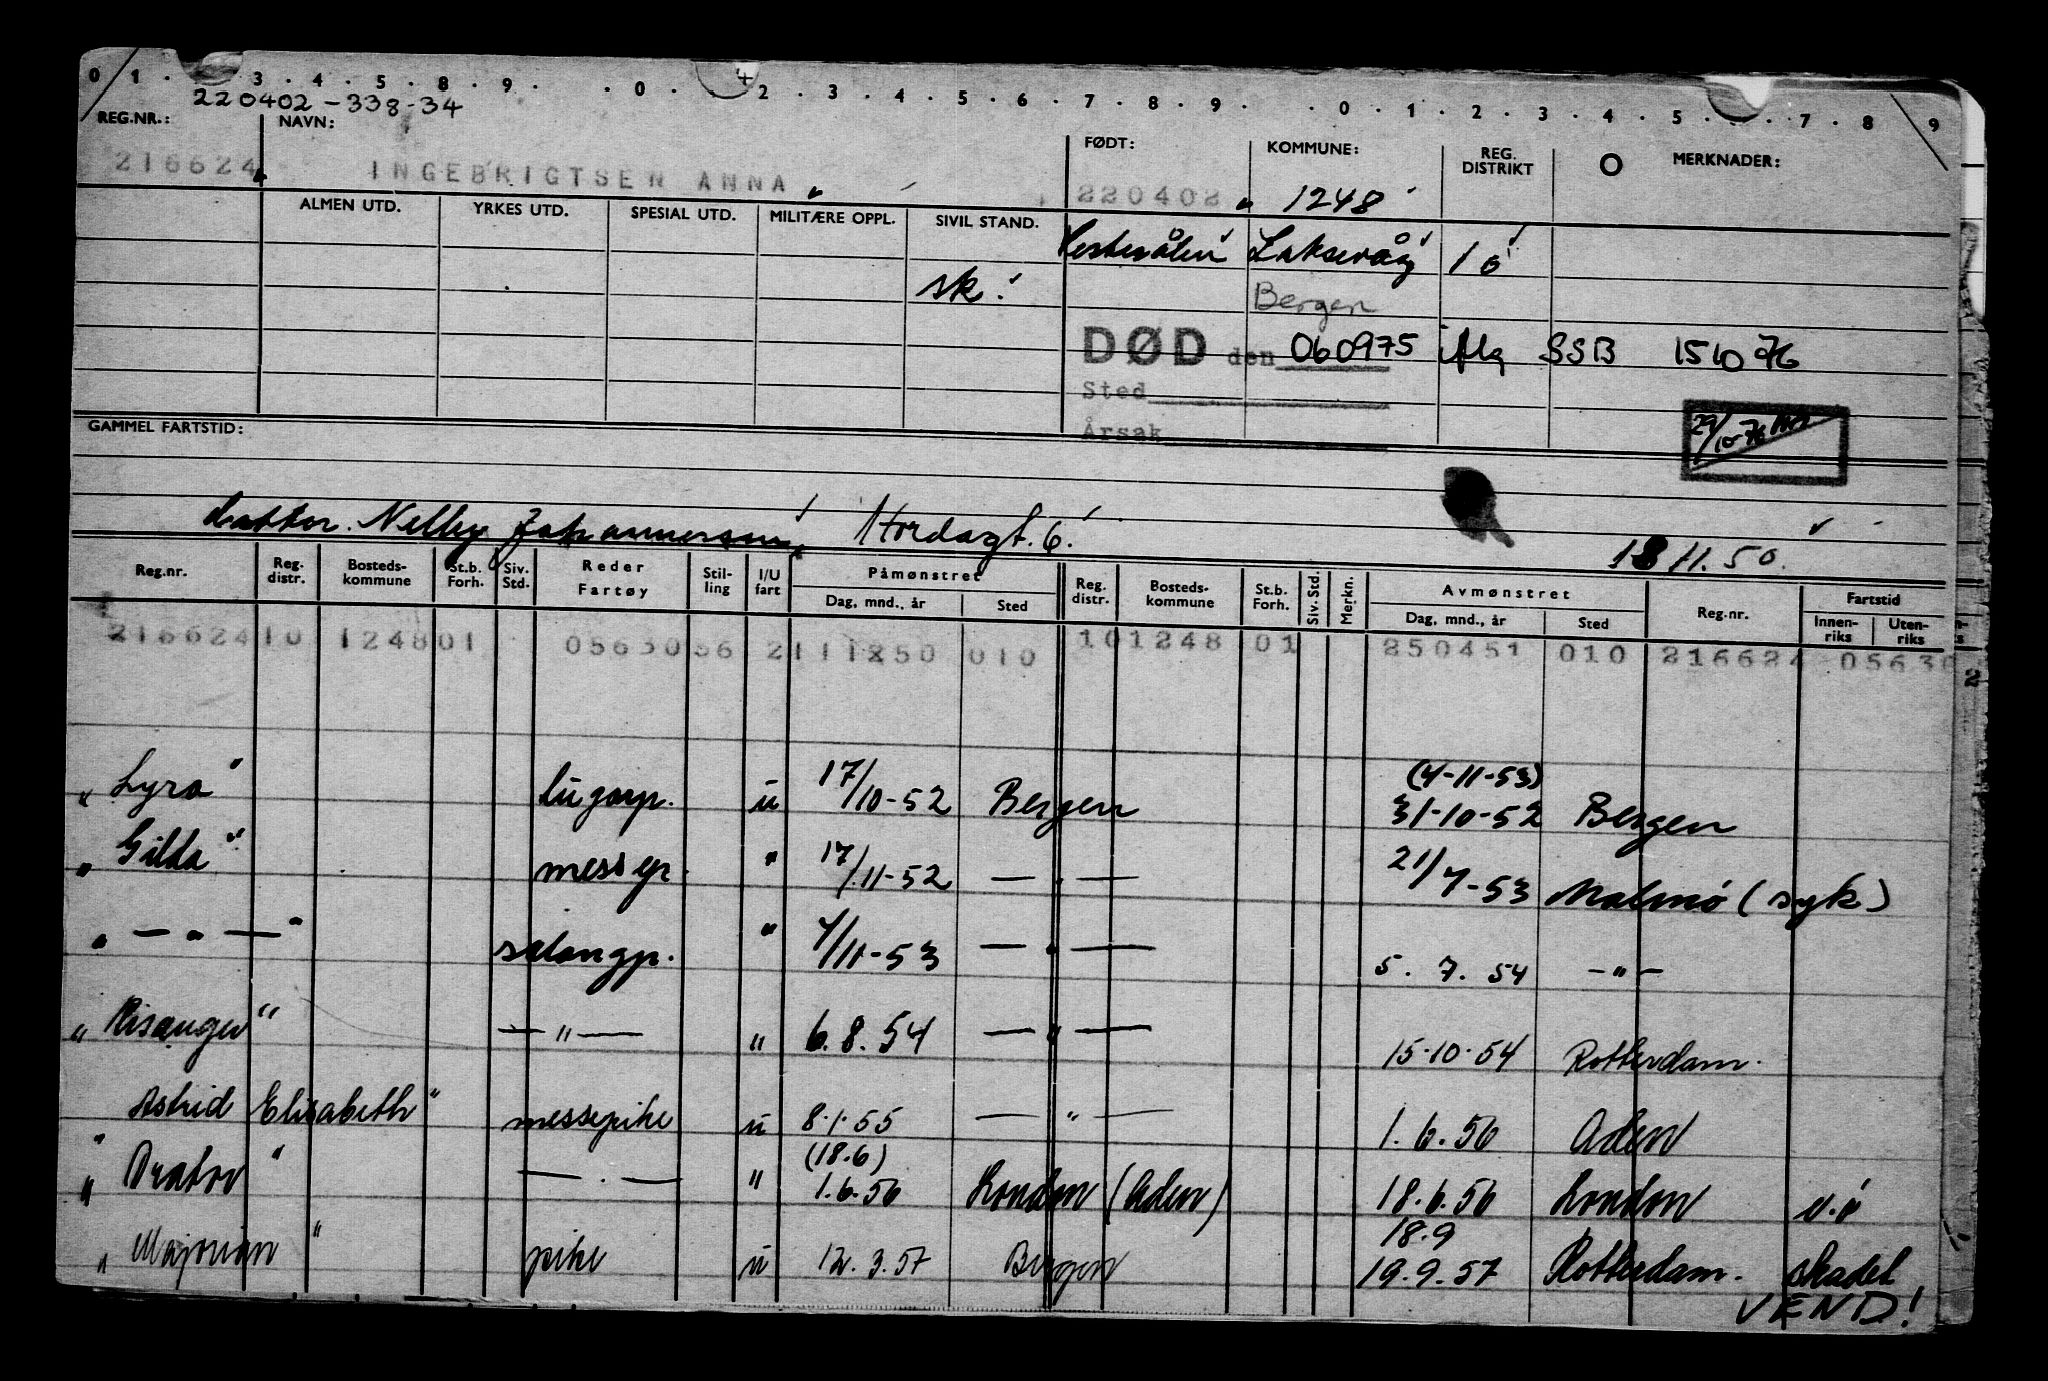 0 1 . 3 . 4 . 5 . 8 . 9 . . 0 . 4 2 . 3 . 4 . 5 . 6 . 7 . 8 . 9 . . 0 . 1 . 2 . 3 . 4 . 5 . . 7 . 8 9
220402-338-34
REG.NR.: NAVN: FØDT: KOMMUNE: REG. DISTRIKT O MERKNADER:
216624 INGEBRIGTSEN ANNA 220402 1248
ALMEN UTD. YRKES UTD. SPESIAL UTD. MILITÆRE OPPL. SIVIL STAND.
Laksevåg 10
sk. Bergen
DØD den 060975 iflg SSB 151076
Sted
Årsak 29/10-76
GAMMEL FARTSTID:
datter Nelly Johannessen, Hordagt. 6.
18 11. 50.
Reg.nr. Reg. distr. Bosteds- kommune St.b. Forh. Siv. Std. Reder Fartøy Stil- ling I/U fart Påmønstret Reg. distr. Bosteds- kommune St.b. Forh. Siv. Std. Merkn. Avmønstret Reg.nr. Fartstid
Dag, mnd., år Sted Dag, mnd., år Sted Innen- riks Uten- riks
216624 10 1248 01 05630 56 2 111250 010 10 1248 01 250451 010 216624 05630 2
(4-11-53)
"Lyra" lugarp. u 17/10-52 Bergen 31-10-52 Bergen
"Gilda" messep. " 17/11-52 — " — 21/7-53 Malmø (syk)
" — " — " salongp. " 4/11-53 — " — 5. 7. 54 — " —
"Risanger" — " — " 6.8.54 — " — 15.10.54 Rotterdam.
"Astrid Elisabeth" messepike u 8.1.55 — " — 1.6.56 Aden
(18.6)
" " — . — " 1.6.56 London (Aden) 18.6.56 London
18.9
"Majorian" pike u 12.3.57 Bergen 19.9.57 Rotterdam. skadet
VEND!